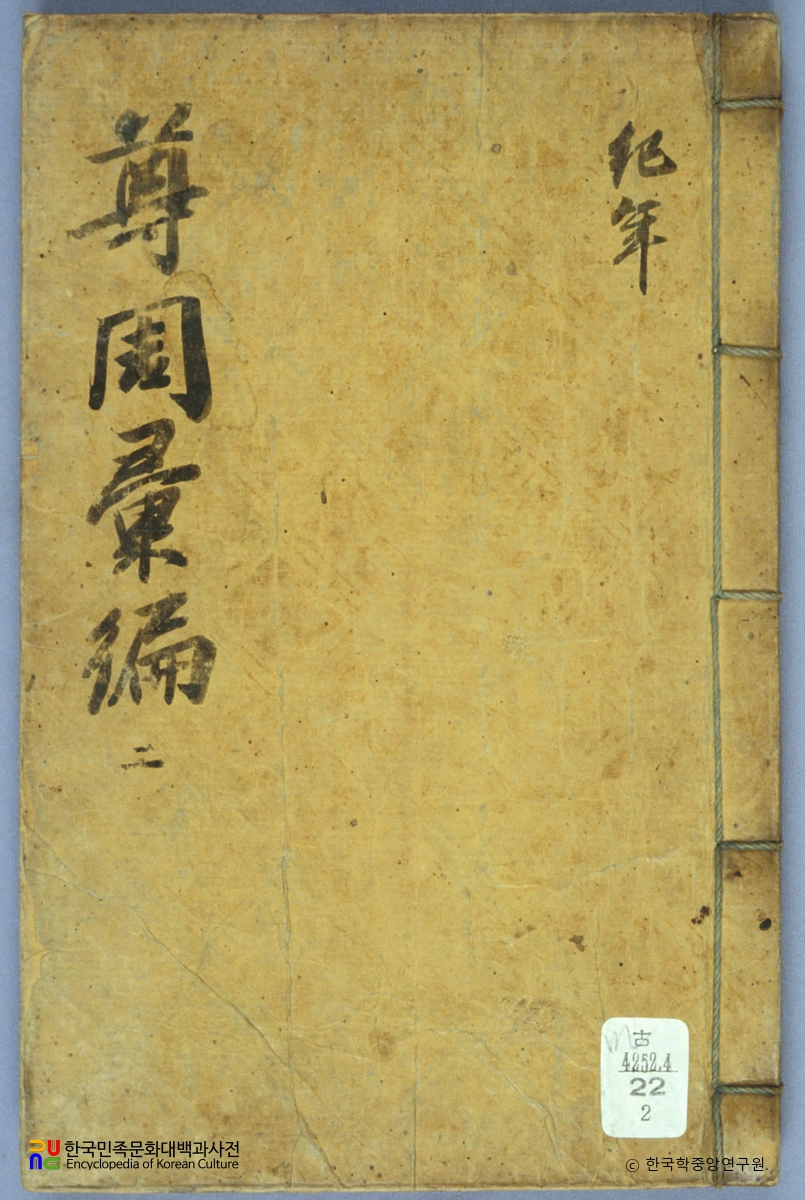 紀年
尊周彙編
二
古
4252.4
22
2
한국민족문화대백과사전
Encyclopedia of Korean Culture
ⓒ 한국학중앙연구원.